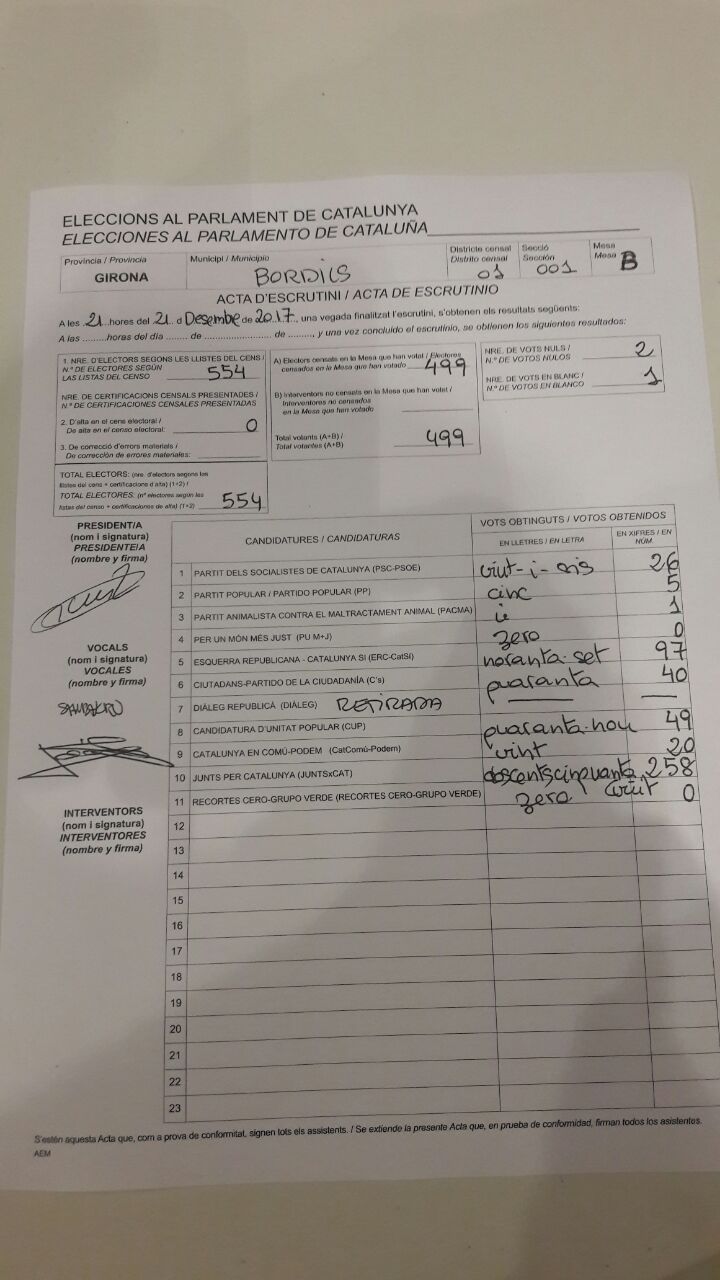 ELECCIONS AL PARLAMENT DE CATALUNYA
ELECCIONES AL PARLAMENTO DE CATALUÑA
Província / Provincia Municipi / Municipio Districte censal Secció Mesa
Distrito censal Sección Mesa B
GIRONA BORDILS 01 001
ACTA D'ESCRUTINI / ACTA DE ESCRUTINIO
A les 21 hores del 21 d Desembre de 2017, una vegada finalitzat l'escrutini, s'obtenen els resultats següents:
A las ........ horas del día ....... de .................... de ........, y una vez concluido el escrutinio, se obtienen los siguientes resultados:
1. NRE. D'ELECTORS SEGONS LES LLISTES DEL CENS /
N.º DE ELECTORES SEGÚN
LAS LISTAS DEL CENSO 554
NRE. DE CERTIFICACIONS CENSALS PRESENTADES /
N.º DE CERTIFICACIONES CENSALES PRESENTADAS
2. D'alta en el cens electoral /
De alta en el censo electoral: 0
3. De correcció d'errors materials /
De corrección de errores materiales:
TOTAL ELECTORS: (nre. d'electors segons les
llistes del cens + certificacions d'alta) (1+2) /
TOTAL ELECTORES: (nº electores según las
listas del censo + certificaciones de alta) (1+2) 554
A) Electors censats en la Mesa que han votat / Electores
censados en la Mesa que han votado 499
B) Interventors no censats en la Mesa que han votat /
Interventores no censados
en la Mesa que han votado
Total votants (A+B) /
Total votantes (A+B) 499
NRE. DE VOTS NULS /
N.º DE VOTOS NULOS 2
NRE. DE VOTS EN BLANC /
N.º DE VOTOS EN BLANCO 1
PRESIDENT/A
(nom i signatura)
PRESIDENTE/A
(nombre y firma)
VOCALS
(nom i signatura)
VOCALES
(nombre y firma)
INTERVENTORS
(nom i signatura)
INTERVENTORES
(nombre y firma)
CANDIDATURES / CANDIDATURAS VOTS OBTINGUTS / VOTOS OBTENIDOS
EN LLETRES / EN LETRA EN XIFRES / EN NÚM.
1 PARTIT DELS SOCIALISTES DE CATALUNYA (PSC-PSOE) vint-i-sis 26
2 PARTIT POPULAR / PARTIDO POPULAR (PP) cinc 5
3 PARTIT ANIMALISTA CONTRA EL MALTRACTAMENT ANIMAL (PACMA) 1
4 PER UN MÓN MÉS JUST (PU M+J) zero 0
5 ESQUERRA REPUBLICANA - CATALUNYA SÍ (ERC-CatSí) noranta-set 97
6 CIUTADANS-PARTIDO DE LA CIUDADANÍA (C's) quaranta 40
7 DIÀLEG REPUBLICÀ (DIÀLEG) RETIRADA
8 CANDIDATURA D'UNITAT POPULAR (CUP) quaranta-nou 49
9 CATALUNYA EN COMÚ-PODEM (CatComú-Podem) vint 20
10 JUNTS PER CATALUNYA (JUNTSxCAT) doscentscinquanta vuit 258
11 RECORTES CERO-GRUPO VERDE (RECORTES CERO-GRUPO VERDE) zero 0
12
13
14
15
16
17
18
19
20
21
22
23
S'estén aquesta Acta que, com a prova de conformitat, signen tots els assistents. / Se extiende la presente Acta que, en prueba de conformidad, firman todos los asistentes.
AEM